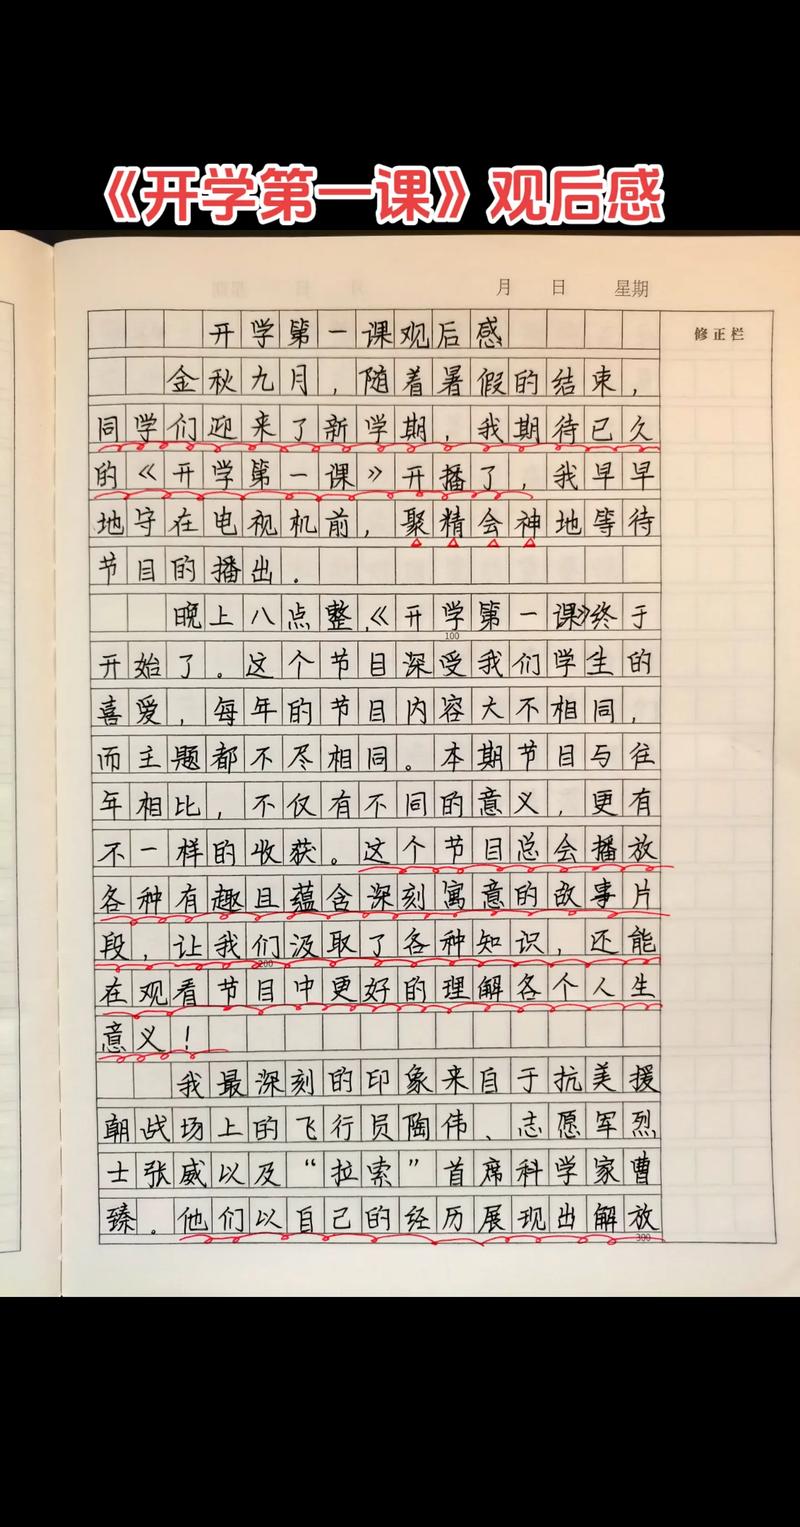 《开学第一课》观后感
月 日 星期
修正栏
开学第一课观后感
金秋九月，随着暑假的结束，
同学们迎来了新学期，我期待已久
的《开学第一课》开播了，我早早
地守在电视机前，聚精会神地等待
节目的播出.
晚上八点整,《开学第一课》终于
100
开始了。这个节目深受我们学生的
喜爱，每年的节目内容大不相同，
而主题都不尽相同。本期节目与往
年相比，不仅有不同的意义，更有
不一样的收获。这个节目总会播放
各种有趣且蕴含深刻寓意的故事片
段，让我们汲取了各种知识，还能
200
在观看节目中更好的理解各个人生
意义！
我最深刻的印象来自于抗美援
朝战场上的飞行员陶伟、志愿军烈
士张威以及“拉索”首席科学家曹
臻.他们以自己的经历展现出解放
300